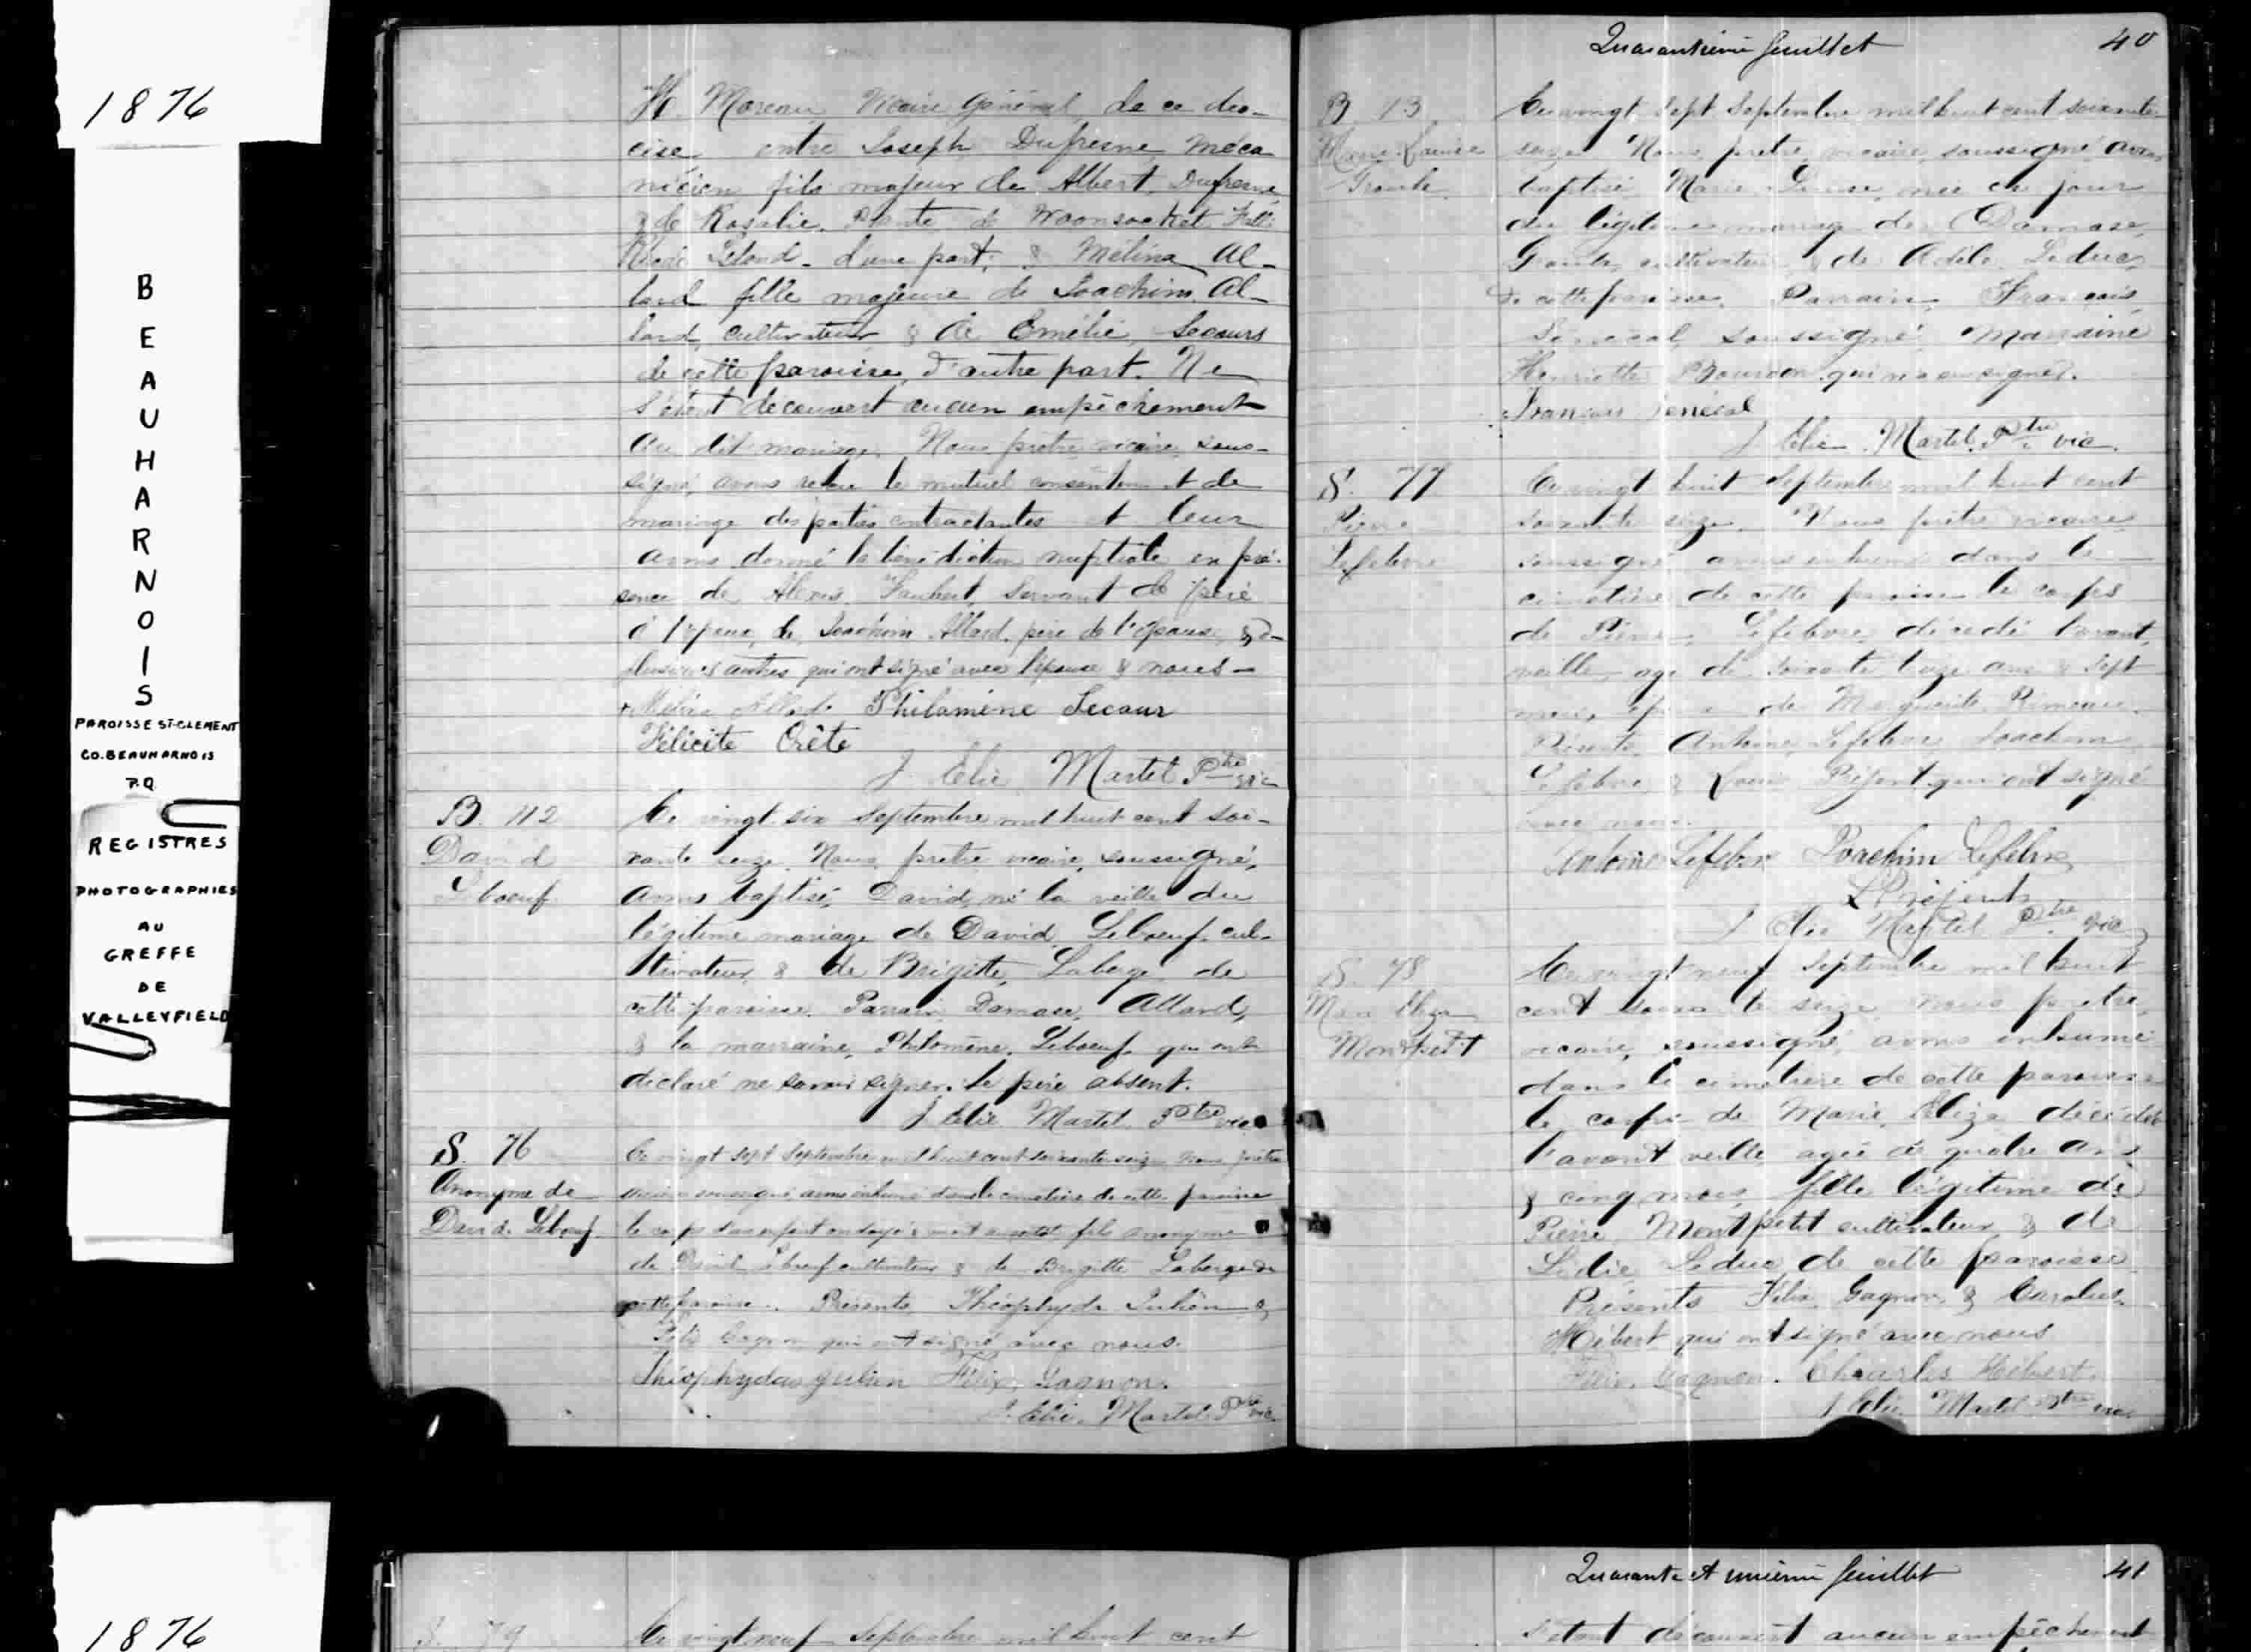 1876
BEAUHARNOIS
PAROISSE ST-CLEMENT
CO. BEAUHARNOIS
P.Q.
REGISTRES
PHOTOGRAPHIES
AU
GREFFE
DE
VALLEYFIELD
H. Moreau, Vicaire Général de ce dio-
cèse entre Joseph Dufresne, méca
nicien fils majeur de Albert Dufresne
& de Rosalie Plante de Woonsocket Falls
Rhode Island d'une part, & Mélina Al-
lard fille majeure de Joachim Al-
lard, cultivateur & de Emélie Secours
de cette paroisse, d'autre part. Ne
s'étant découvert aucun empêchement
au dit mariage, Nous prêtre vicaire sous-
signé, avons reçu le mutuel consentement de
mariage des parties contractantes et leur
avons donné la bénédiction nuptiale en pré-
sence de Alexis Faubert, servant de père
à l'époux, de Joachim Allard, père de l'épouse, & de
plusieurs autres qui ont signé avec l'épouse & nous-
Allard Philomène Secour
Félicité Crête
J. Elie Martel Ptre vic
B. 112
David
Leboeuf
Ce vingt six Septembre mil huit cent soi-
xante seize, Nous, prêtre vicaire, soussigné,
avons baptisé, David, né la veille du
légitime mariage de David Leboeuf, cul-
tivateur & de Brigitte Laberge de
cette paroisse. Parrain, Damase, Allard,
& la marraine, Philomène, Leboeuf qui ont
déclaré ne savoir signer. Le père absent.
J. Elie Martel Ptre vic
S. 76
Anonyme de
David Leboeuf
Ce vingt sept Septembre mil huit cent soixante seize, Nous prêtre
vicaire soussigné avons inhumé dans le cimetière de cette paroisse
le corps d'un enfant ondoyé & mort aussitôt fils anonyme
de David Leboeuf cultivateur & de Brigitte Laberge de
cette paroisse. Présents Théophyde Julien &
Félix Gagnon qui ont signé avec nous.
Théophydas Julien Félix Gagnon
J. Elie Martel Ptre vic
Quarantième feuillet 40
B 13
Marie Louise
Ce vingt sept Septembre mil huit cent soixante
seize Nous, prêtre, vicaire, soussigné avons
baptisé Marie Louise, née ce jour
du légitime mariage de Damase,
cultivateur & de Adèle Leduc,
de cette paroisse. Parrain, François
Senécal, soussigné, Marraine
Henriette Bourdon qui n'a su signer.
François Senécal
J. Elie Martel Ptre vic.
S. 77
Pierre
Lefebvre
Ce vingt huit Septembre mil huit cent
soixante seize, Nous prêtre vicaire
soussigné avons inhumé dans le
cimetière de cette paroisse le corps
de Pierre Lefebvre, décédé l'avant
veille, âgé de soixante treize ans & sept
mois, époux de Marguerite Primeau.
Présents Antoine Lefebvre, Joachim
Lefebvre & Louis Préfont. qui ont signé
avec nous.
Antoine Lefebvre Joachim Lefebvre
J. Elie Martel Ptre vic
S. 78
Marie Eliza
Montpetit
Ce vingt neuf Septembre mil huit
cent soixante seize, nous prêtre,
vicaire, soussigné, avons inhumé
dans le cimetière de cette paroisse
le corps de Marie, Eliza décédée
l'avant veille, agée de quatre ans
& cinq mois, fille légitime de
Pierre Montpetit cultivateur & de
Lidie Leduc de cette paroisse
Présents Félix Gagnon & Charles
Hébert qui ont signé avec nous
Félix Gagnon. Charles Hébert.
J Elie Martel Ptre vic
1876
S. 79
Ce vingt neuf Septembre mil huit cent
Quarante et unième feuillet 41
s'étant découvert aucun empêchement